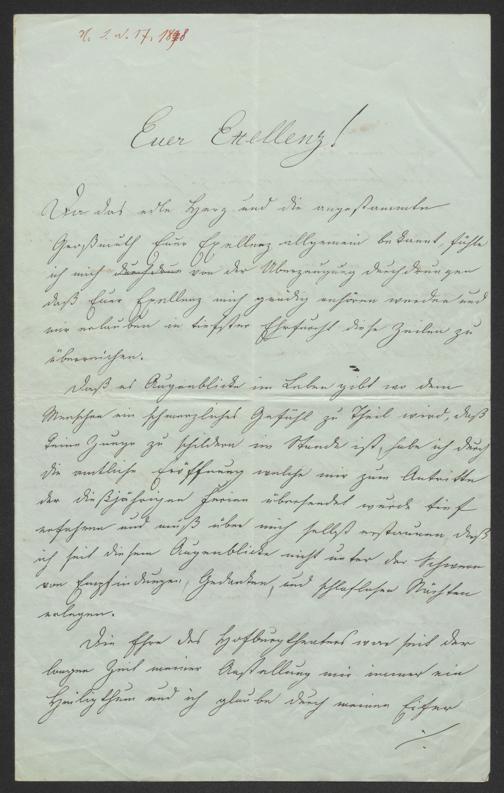 Euer Exellenz!
Da das edle Herz und die angestammte
Großmuth Euer Exellenz allgemein bekannt, fühle
ich mich durchdrun von der Überzeugung durchdrungen
daß Euer Exellenz mich gnädig anhören werden und
mir erlauben in tiefster Ehrfurcht diese Zeilen zu
überreichen.
Daß es Augenblicke im Leben gibt wo dem
Menschen ein schmerzliches Gefühl zu Theil wird, daß
keine Zunge zu schildern im Stande ist, habe ich durch
die amtliche Eröffnung welche mir zum Antritte
der dießjährigen Ferien übersendet wurde tief
erfahren und muß über mich selbst erstaunen, daß
ich seit diesem Augenblicke nicht unter der Schwere
von Empfindungen, Gedanken, und schlaflosen Nächten
erlegen.
Die Ehre des Hofburgtheaters war seit der
langen Zeit meiner Anstellung mir immer ein
Heiligthum und ich glaube durch meinen Eifer
./.